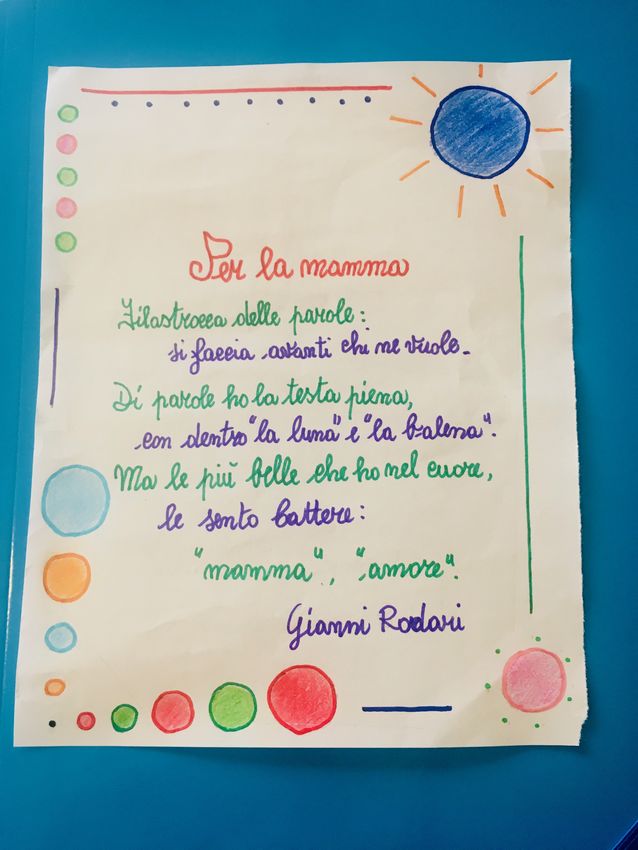 Per la mamma
Filastrocca delle parole:
si faccia avanti chi ne vuole.
Di parole ho la testa piena,
con dentro "la luna" e "la balena".
Ma le più belle che ho nel cuore,
le sento battere:
"mamma", "amore".
Gianni Rodari